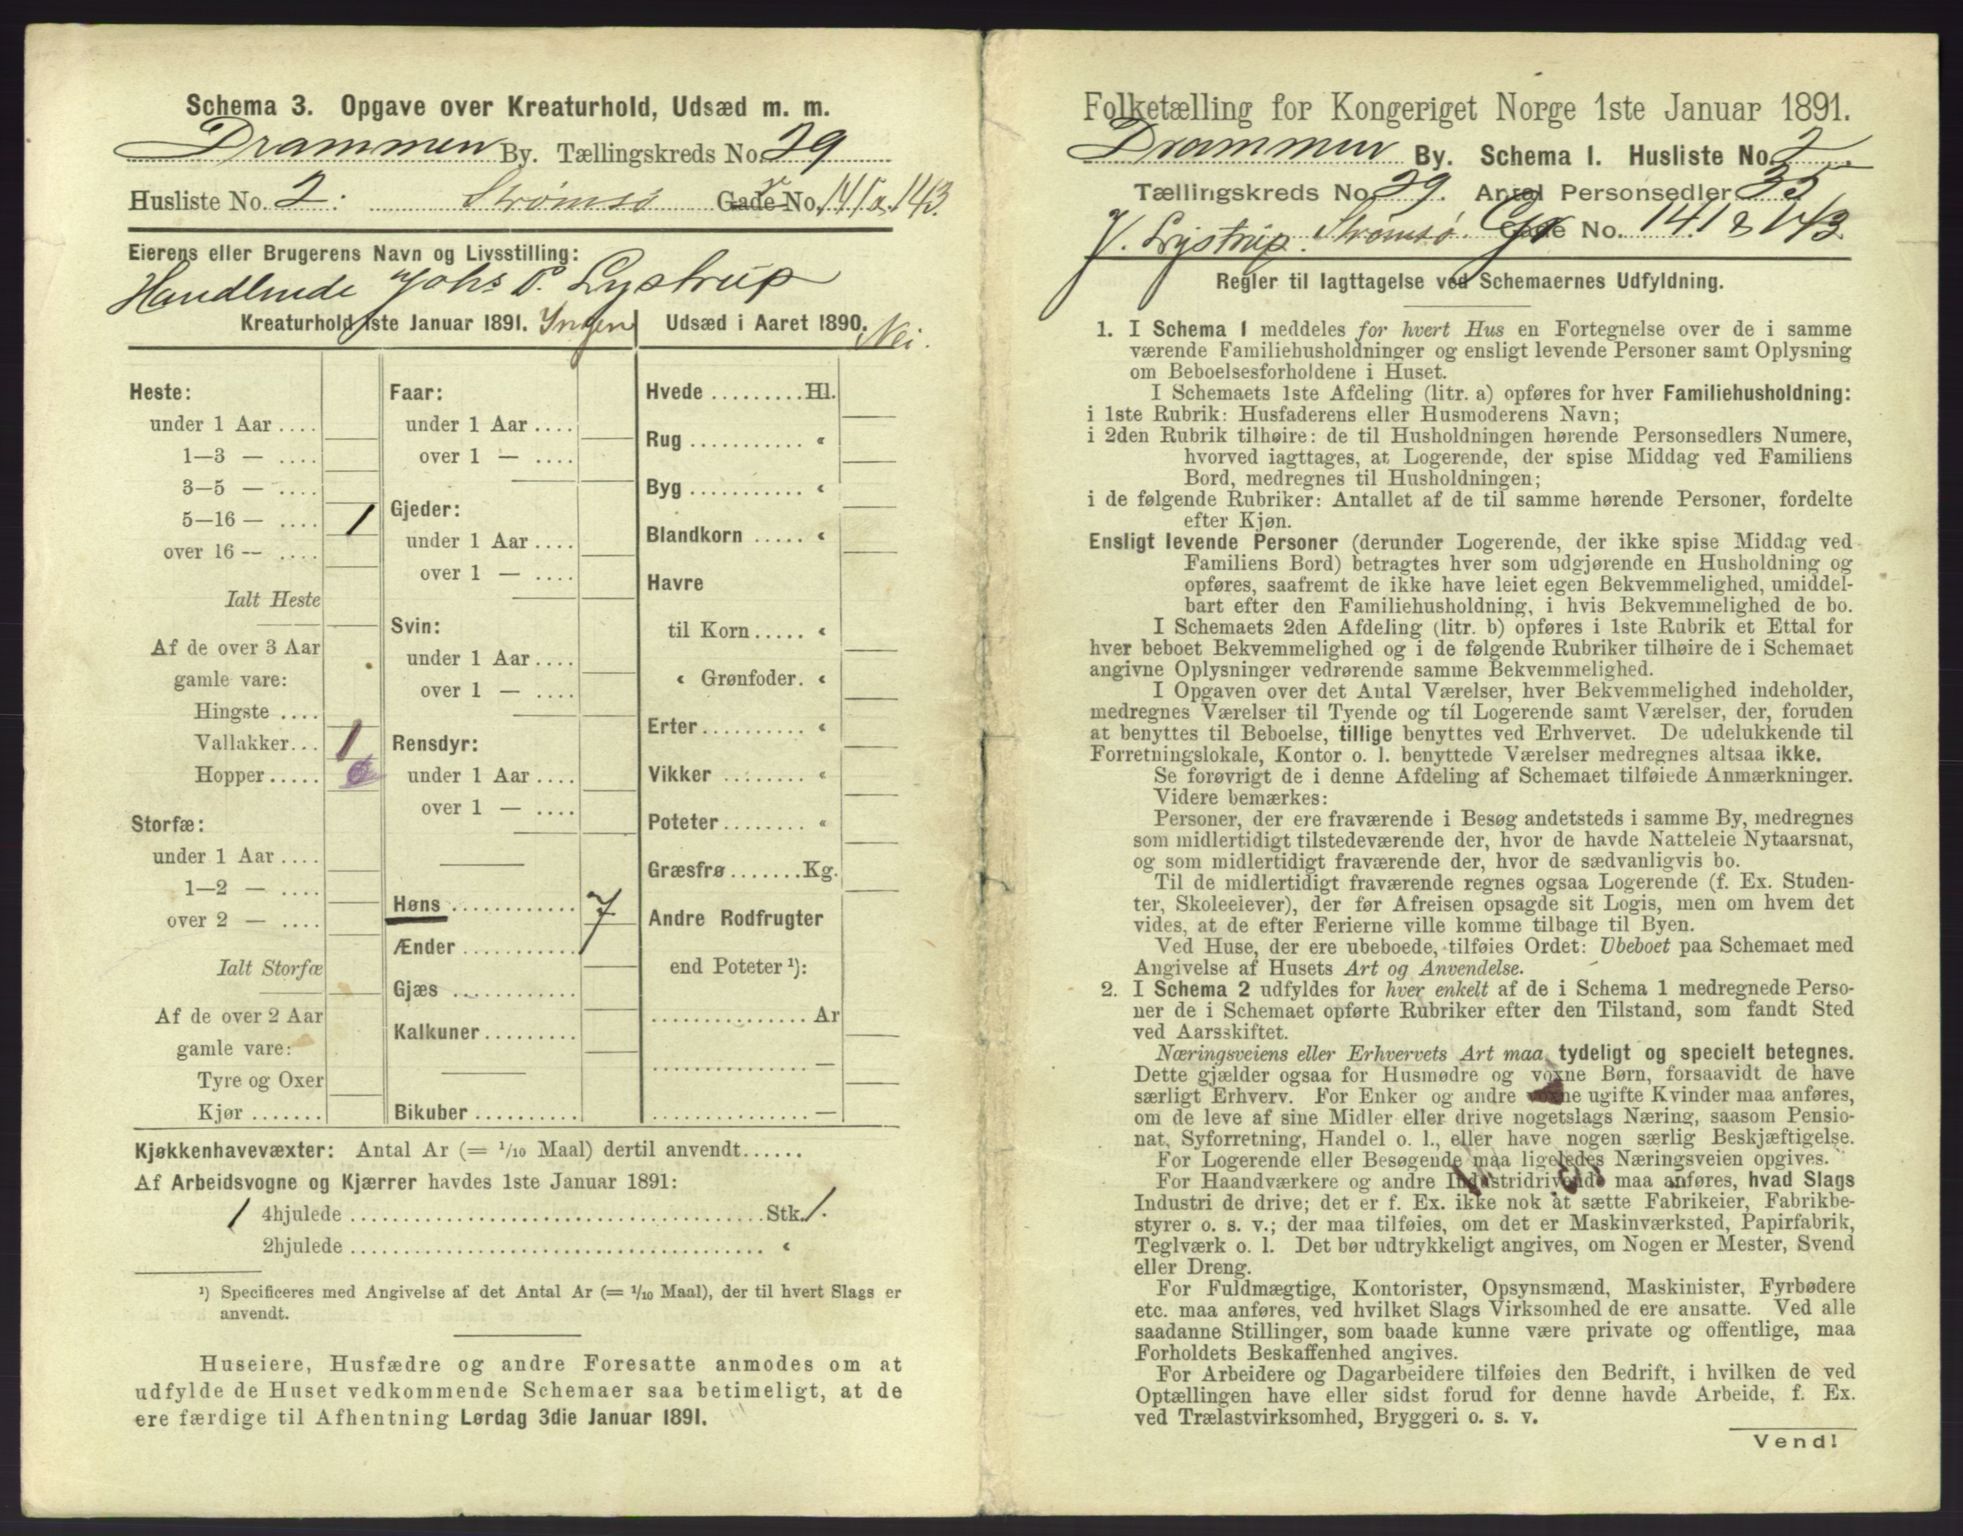 Schema 3. Opgave over Kreaturhold, Udsæd m. m.
Drammen By. Tællingskreds No. 29
Husliste No. 2. Strømsø Gade No. 141 & 143.
Eierens eller Brugerens Navn og Livsstilling:
Handlende Johs P. Lystrup
Kreaturhold 1ste Januar 1891. Ingen
Heste:
under 1 Aar ....
1—3 — ....
3—5 — ....
5—16 — .... 1
over 16 — ....
Ialt Heste
Af de over 3 Aar
gamle vare:
Hingste ....
Vallakker... 1
Hopper.....
Storfæ:
under 1 Aar ....
1—2 — ....
over 2 — ....
Ialt Storfæ
Af de over 2 Aar
gamle vare:
Tyre og Oxer
Kjør .......
Faar:
under 1 Aar ....
over 1 — ....
Gjeder:
under 1 Aar ....
over 1 — ....
Svin:
under 1 Aar ....
over 1 — ....
Rensdyr:
under 1 Aar ....
over 1 — ....
Høns ............ 7
Ænder ...........
Gjæs ............
Kalkuner .........
Bikuber ..........
Udsæd i Aaret 1890. Nei.
Hvede .........Hl.
Rug ........... «
Byg ........... «
Blandkorn ..... «
Havre
til Korn ..... «
« Grønfoder. «
Erter .......... «
Vikker ........ «
Poteter ........ «
Græsfrø .......Kg.
Andre Rodfrugter
end Poteter ¹):
............... Ar
............... —
............... —
Kjøkkenhavevæxter: Antal Ar (= 1/10 Maal) dertil anvendt......
Af Arbeidsvogne og Kjærrer havdes 1ste Januar 1891:
1 4hjulede ........................................Stk. 1.
2hjulede ........................................ «
¹) Specificeres med Angivelse af det Antal Ar (= 1/10 Maal), der til hvert Slags er
anvendt.
Huseiere, Husfædre og andre Foresatte anmodes om at
udfylde de Huset vedkommende Schemaer saa betimeligt, at de
ere færdige til Afhentning Lørdag 3die Januar 1891.
Folketælling for Kongeriget Norge 1ste Januar 1891.
Drammen By. Schema 1. Husliste No. 2.
Tællingskreds No. 29. Antal Personsedler 35
J. Lystrup. Strømsø. Gade No. 141 & 143
Regler til Iagttagelse ved Schemaernes Udfyldning.
1. I Schema 1 meddeles for hvert Hus en Fortegnelse over de i samme
værende Familiehusholdninger og ensligt levende Personer samt Oplysning
om Beboelsesforholdene i Huset.
I Schemaets 1ste Afdeling (litr. a) opføres for hver Familiehusholdning:
i 1ste Rubrik: Husfaderens eller Husmoderens Navn;
i 2den Rubrik tilhøire: de til Husholdningen hørende Personsedlers Numere,
hvorved iagttages, at Logerende, der spise Middag ved Familiens
Bord, medregnes til Husholdningen;
i de følgende Rubriker: Antallet af de til samme hørende Personer, fordelte
efter Kjøn.
Ensligt levende Personer (derunder Logerende, der ikke spise Middag ved
Familiens Bord) betragtes hver som udgjørende en Husholdning og
opføres, saafremt de ikke have leiet egen Bekvemmelighed, umiddel-
bart efter den Familiehusholdning, i hvis Bekvemmelighed de bo.
I Schemaets 2den Afdeling (litr. b) opføres i 1ste Rubrik et Ettal for
hver beboet Bekvemmelighed og i de følgende Rubriker tilhøire de i Schemaet
angivne Oplysninger vedrørende samme Bekvemmelighed.
I Opgaven over det Antal Værelser, hver Bekvemmelighed indeholder,
medregnes Værelser til Tyende og til Logerende samt Værelser, der, foruden
at benyttes til Beboelse, tillige benyttes ved Erhvervet. De udelukkende til
Forretningslokale, Kontor o. l. benyttede Værelser medregnes altsaa ikke.
Se forøvrigt de i denne Afdeling af Schemaet tilføiede Anmærkninger.
Videre bemærkes:
Personer, der ere fraværende i Besøg andetsteds i samme By, medregnes
som midlertidigt tilstedeværende der, hvor de havde Natteleie Nytaarsnat,
og som midlertidigt fraværende der, hvor de sædvanligvis bo.
Til de midlertidigt fraværende regnes ogsaa Logerende (f. Ex. Studen-
ter, Skoleelever), der før Afreisen opsagde sit Logis, men om hvem det
vides, at de efter Ferierne ville komme tilbage til Byen.
Ved Huse, der ere ubeboede, tilføies Ordet: Ubeboet paa Schemaet med
Angivelse af Husets Art og Anvendelse.
2. I Schema 2 udfyldes for hver enkelt af de i Schema 1 medregnede Perso-
ner de i Schemaet opførte Rubriker efter den Tilstand, som fandt Sted
ved Aarsskiftet.
Næringsveiens eller Erhvervets Art maa tydeligt og specielt betegnes.
Dette gjælder ogsaa for Husmødre og voxne Børn, forsaavidt de have
særligt Erhverv. For Enker og andre voxne ugifte Kvinder maa anføres,
om de leve af sine Midler eller drive nogetslags Næring, saasom Pensio-
nat, Syforretning, Handel o. l., eller have nogen særlig Beskjæftigelse.
For Logerende eller Besøgende maa ligeledes Næringsveien opgives.
For Haandværkere og andre Industridrivende maa anføres, hvad Slags
Industri de drive; det er f. Ex. ikke nok at sætte Fabrikeier, Fabrikbe-
styrer o. s. v.; der maa tilføies, om det er Maskinværksted, Papirfabrik,
Teglværk o. l. Det bør udtrykkeligt angives, om Nogen er Mester, Svend
eller Dreng.
For Fuldmægtige, Kontorister, Opsynsmænd, Maskinister, Fyrbødere
etc. maa anføres, ved hvilket Slags Virksomhed de ere ansatte. Ved alle
saadanne Stillinger, som baade kunne være private og offentlige, maa
Forholdets Beskaffenhed angives.
For Arbeidere og Dagarbeidere tilføies den Bedrift, i hvilken de ved
Optællingen have eller sidst forud for denne havde Arbeide, f. Ex.
ved Trælastvirksomhed, Bryggeri o. s. v.
Vend!